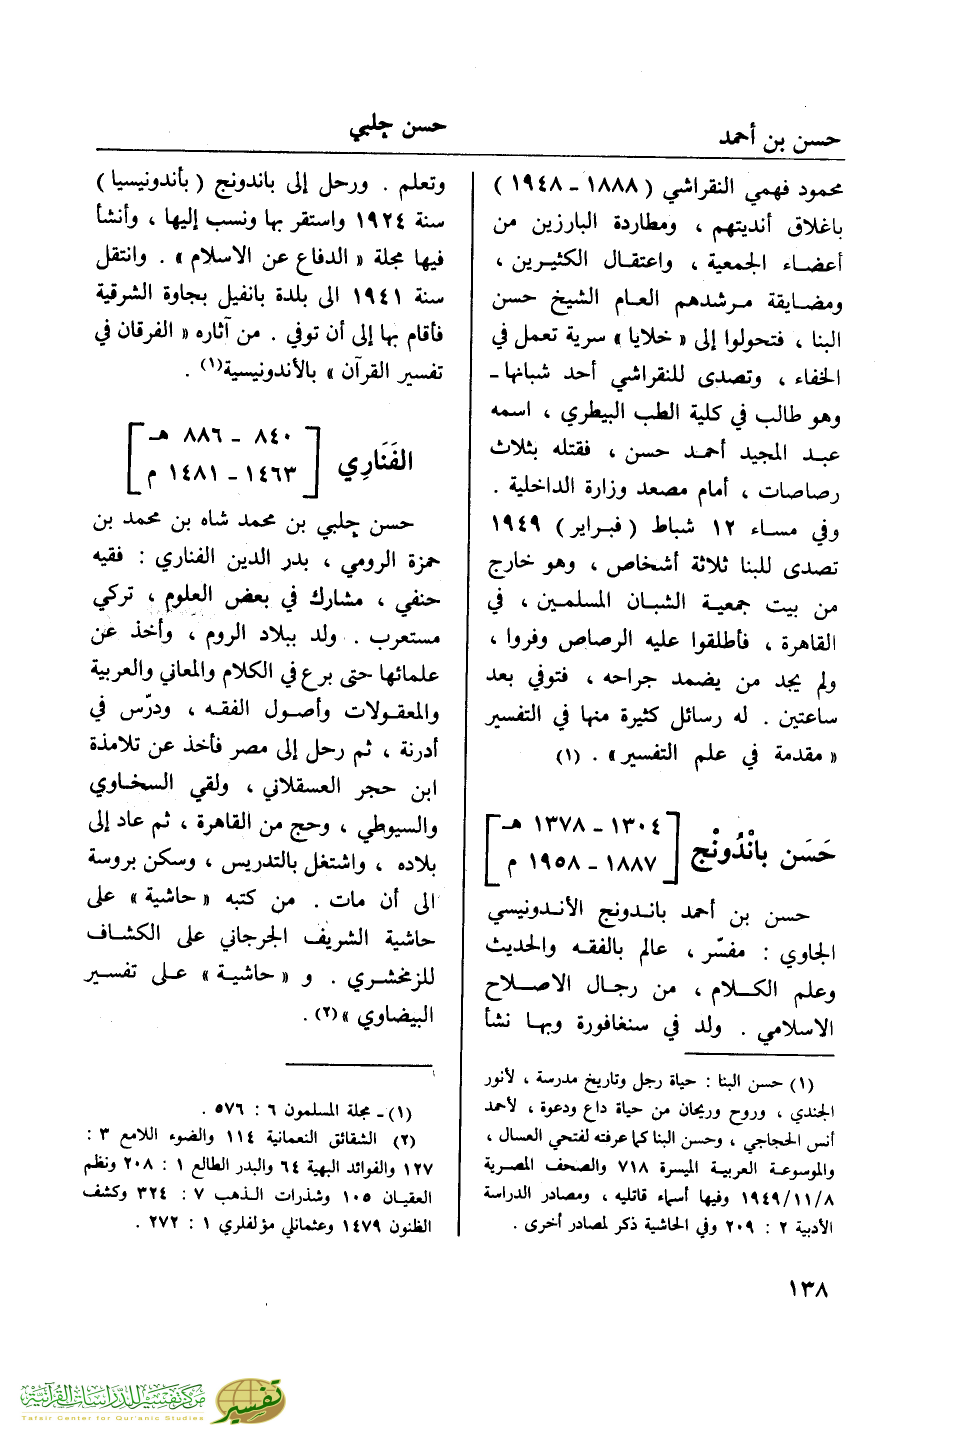 حسن بن أحمد
حسن چلبي
محمود فهمي النقراشي ( ١٨٨٨ - ١٩٤٨ )
باغلاق أنديتهم ، ومطاردة البارزين من
أعضاء الجمعية ، واعتقال الكثيرين ،
ومضايقة مرشدهم العام الشيخ حسن
البنا ، فتحولوا إلى « خلايا » سرية تعمل في
الخفاء ، وتصدى للنقراشي أحد شبانها -
وهو طالب في كلية الطب البيطري ، اسمه
عبد المجيد أحمد حسن ، فقتله بثلاث
رصاصات ، أمام مصعد وزارة الداخلية .
وفي مساء ١٢ شباط ( فبراير ) ١٩٤٩
تصدى للبنا ثلاثة أشخاص ، وهو خارج
من بيت جمعية الشبان المسلمين ، في
القاهرة ، فأطلقوا عليه الرصاص وفروا ،
ولم يجد من يضمد جراحه ، فتوفي بعد
ساعتين . له رسائل كثيرة منها في التفسير
« مقدمة في علم التفسير » . (١)
حَسَن بانْدُونْج [ ١٣٠٤ - ١٣٧٨ هـ
١٨٨٧ - ١٩٥٨ م ]
حسن بن أحمد باندونج الأندونيسي
الجاوي : مفسّر ، عالم بالفقه والحديث
وعلم الكلام ، من رجال الاصلاح
الاسلامي . ولد في سنغافورة وبها نشأ
(١) حسن البنا : حياة رجل وتاريخ مدرسة ، لأنور
الجندي ، وروح وريحان من حياة داع ودعوة ، لأحمد
أنس الحجاجي ، وحسن البنا كما عرفته لفتحي العسال ،
والموسوعة العربية الميسرة ٧١٨ والصحف المصرية
١٩٤٩/١١/٨ وفيها أسماء قاتليه ، ومصادر الدراسة
الأدبية ٢ : ٢٠٩ وفي الحاشية ذكر لمصادر أخرى .
وتعلم . ورحل إلى باندونج ( بأندونيسيا )
سنة ١٩٢٤ واستقر بها ونسب إليها ، وأنشأ
فيها مجلة « الدفاع عن الاسلام » . وانتقل
سنة ١٩٤١ الى بلدة بانفيل بجاوة الشرقية
فأقام بها إلى أن توفي . من آثاره « الفرقان في
تفسير القرآن » بالأندونيسية(١) .
الفَنَارِي [ ٨٤٠ - ٨٨٦ هـ
١٤٦٣ - ١٤٨١ م ]
حسن چلبي بن محمد شاه بن محمد بن
حمزة الرومي ، بدر الدين الفناري : فقيه
حنفي ، مشارك في بعض العلوم ، تركي
مستعرب . ولد ببلاد الروم ، وأخذ عن
علمائها حتى برع في الكلام والمعاني والعربية
والمعقولات وأصول الفقه ، ودرّس في
أدرنة ، ثم رحل إلى مصر فأخذ عن تلامذة
ابن حجر العسقلاني ، ولقي السخاوي
والسيوطي ، وحج من القاهرة ، ثم عاد إلى
بلاده ، واشتغل بالتدريس ، وسكن بروسة
الى أن مات . من كتبه « حاشية » على
حاشية الشريف الجرجاني على الكشاف
للزمخشري . و « حاشية » على تفسير
البيضاوي »(٢) .
(١) - مجلة المسلمون ٦ : ٥٧٦ .
(٢) الشقائق النعمانية ١١٤ والضوء اللامع ٣ :
١٢٧ والفوائد البهية ٦٤ والبدر الطالع ١ : ٢٠٨ ونظم
العقيان ١٠٥ وشذرات الذهب ٧ : ٣٢٤ وكشف
الظنون ١٤٧٩ وعثمانلي مؤلفلري ١ : ٢٧٢ .
١٣٨
مركز تفسير للدراسات القرآنية
Tafsir Center for Qur'anic Studies
تفسير